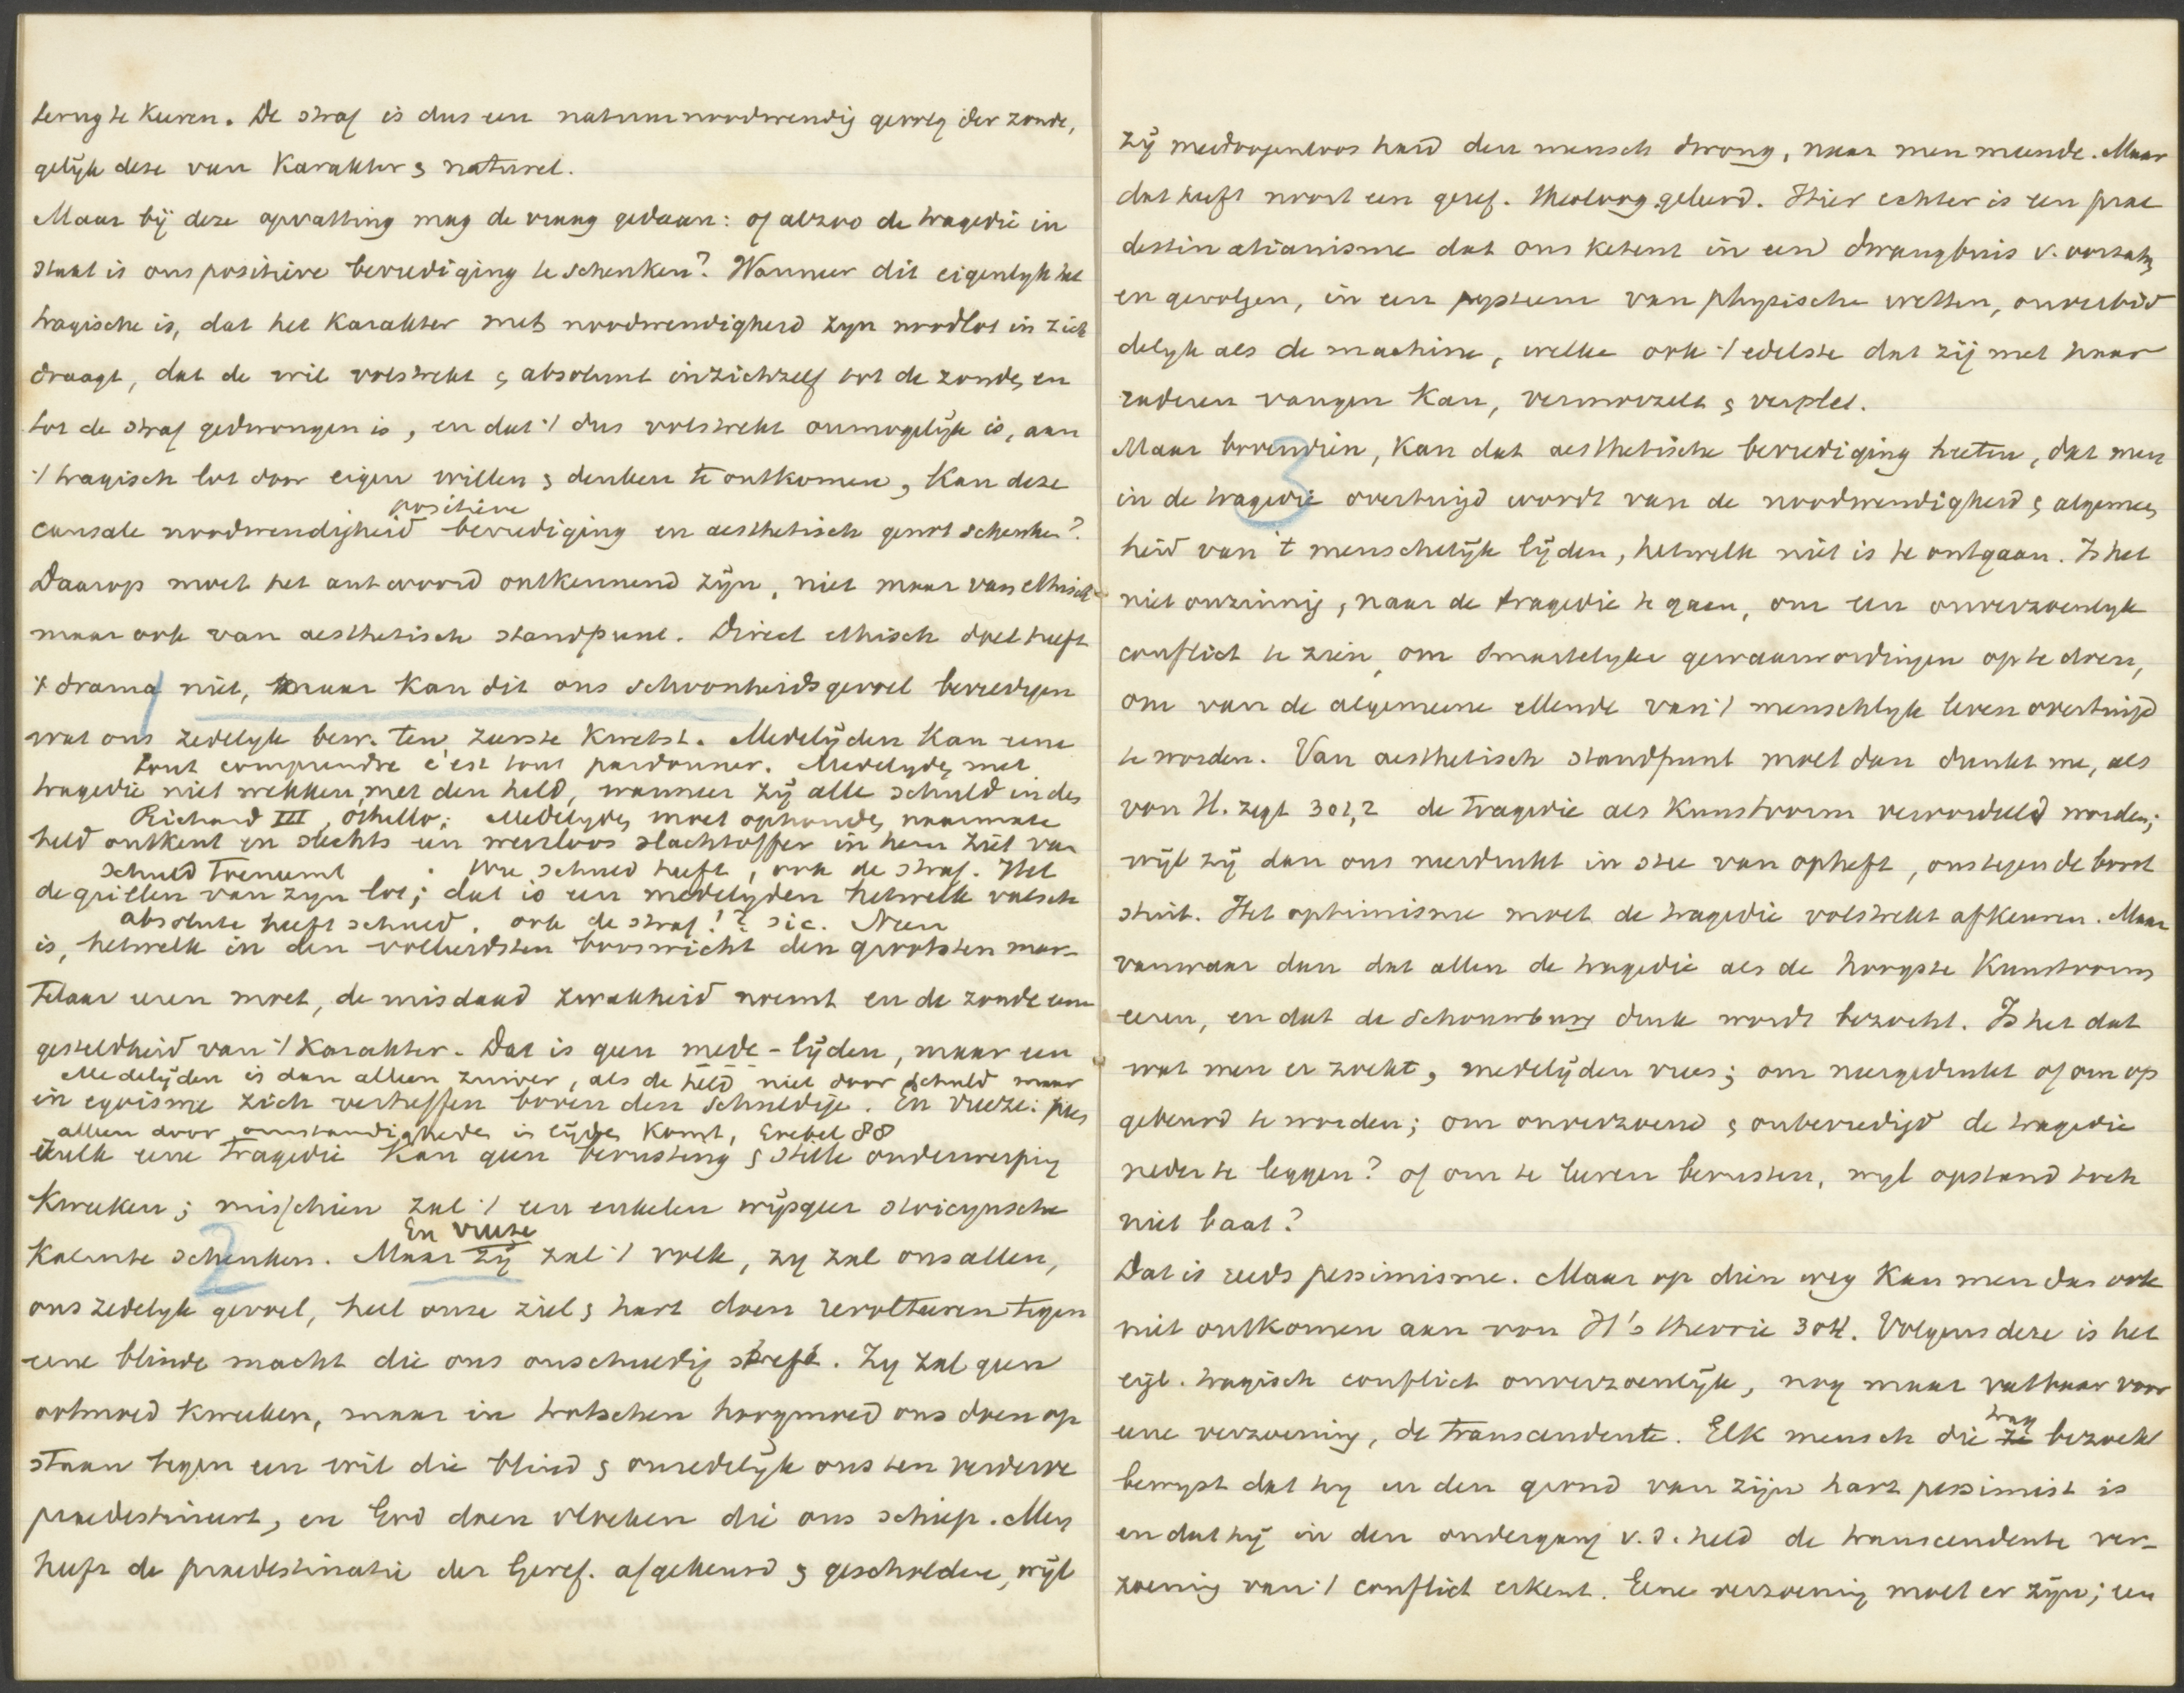 terug te keeren. De straf is dus een natuurnoodwendig gevolg der zonde,
gelijk deze van karakter & naturel.
Maar bij deze opvatting mag de vraag gedaan: of alzoo de tragedie in
staat is ons positieve bevrediging te schenken? Wanneer dit eigenlyk het
tragische is, dat het karakter met noodwendigheid zyn noodlot in zich
draagt, dat de wil volstrekt & absoluut in zichzelf tot de zonde, en
tot de straf gedwongen is, en dat 't dus volstrekt onmogelijk is, aan
't tragisch lot door eigen willen & denken te ontkomen, kan deze
positieve
causale noodwendigheid bevrediging en aesthetisch genot schenken?
Daarop moet het antwoord ontkennend zijn, niet maar van ethisch
maar ook van aesthetisch standpunt. Direct ethisch doel heeft
't drama niet, maar kan dit ons schoonheidsgevoel bevredigen
wat ons zedelyk bew. ten zeerste kwetst. Medelijden kan eene
Tout comprendre c'est tout pardonner. Medelyden met
tragedie niet wekken, met den held, wanneer zij alle schuld in des
Richard III, Othello; Medelyden moet ophouden, naarmate
held ontkent en slechts een weerloos slachtoffer in hem ziet van
schuld toeneemt. Wie schuld heeft, ook de straf. Het
de grillen van zyn lot; dat is een medelyden hetwelk valsch
absolute heeft schuld, ook de straf!? sic. Neen
is, hetwelk in den volleerdsten booswicht den grootsten mar-
telaar eeren moet, de misdaad zwakheid noemt en de zonde eene
gesteldheid van 't karakter. Dat is geen mede-lijden, maar een
Medelijden is dan alleen zuiver, als de held niet door schuld maar
in egoisme zich verheffen boven den schuldige. En vreeze:
alleen door omstandigheden in lijden komt, Goebel 88
zulk eene tragedie kan geen berusting & stille onderwerping
kweeken; misschien zal 't een enkelen wijsgeer stoicynsche
En vreeze
kalmte schenken. Maar zij zal 't volk, zy zal ons allen,
ons zedelyk gevoel, heel onze ziel & hart doen revolteeren tegen
eene blinde macht die ons onschuldig straft. Zy zal geen
ootmoed kweeken, maar in trotschen hoogmoed ons doen op
staan tegen een wil die blind & onredelijk ons ten verderve
praedestineert, en God doen vloeken die ons schiep. Men
heeft de praedestinatie der Geref. afgekeurd & gescholden, wijl
zij meedoogenloos hard den mensch dwong, naar men meende. Maar
dat heeft nooit een geref. theoloog geleerd. Hier echter is een prae
destinatianisme dat ons ketent in een dwangbuis v. oorzaken
en gevolgen, in een systeem van physische wetten, onverbid
delyk als de machine, welke ook 't edelste dat zij met haar
raderen vangen kan, vermorzelt & verplet.
Maar bovendien, kan dat aesthetische bevrediging heeten, dat men
in de tragedie overtuigd wordt van de noodwendigheid & algemeen
heid van 't menschelijk lijden, hetwelk niet is te ontgaan. Is het
niet onzinnig, naar de tragedie te gaan, om een onverzoenlyk
conflict te zien, om smartelyke gewaarwordingen op te doen,
om van de algemeene ellende van 't menschlyk leven overtuigd
te worden. Van aesthetisch standpunt moet dan dunkt me, als
von H. zegt 301,2 de tragedie als kunstvorm veroordeeld worden;
wijl zij dan ons neerdrukt in stee van opheft, ons tegen de borst
stuit. Het optimisme moet de tragedie volstrekt afkeuren. Maar
vanwaar dan dat allen de tragedie als de hoogste kunstvorm
eeren, en dat de schouwburg druk wordt bezocht. Is het dat
wat men er zoekt, medelijden vrees; om neergedrukt of om op
gebeurd te worden; om onverzoend & onbevredigd de tragedie
neder te leggen? of om te leeren berusten, wyl opstand toch
niet baat?
Dat is reeds pessimisme. Maar op dien weg kan men dan ook
niet ontkomen aan von H's theorie 304. Volgens deze is het
eigl. tragisch conflict onverzoenlijk, nog maar vatbaar voor
trag
eene verzoening, de transcendente. Elk mensch die ze bezoekt
bewyst dat hy in den grond van zijn hart pessimist is
en dat hij in den ondergang v. d. held de transcendente ver-
zoening van 't conflict erkent. Eene verzoening moet er zijn; een
1
2
3